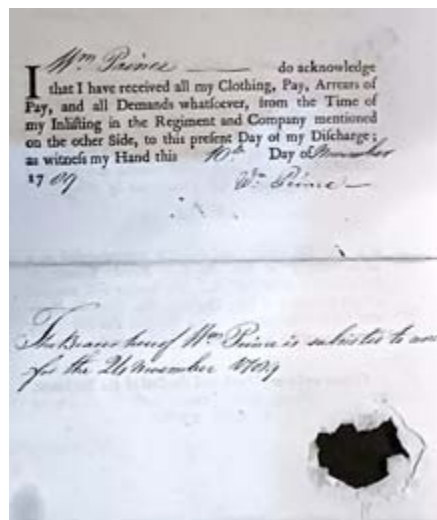 I Wm Prince do acknowledge
that I have received all my Clothing, Pay, Arrears of
Pay, and all Demands whatſoever, from the Time of
my Inliſting in the Regiment and Company mentioned
on the other Side, to this preſent Day of my Diſcharge;
as witneſs my Hand this 10th Day of November
17
Wm Prince
The Bearer hereof Wm Prince is to
for the 26 November